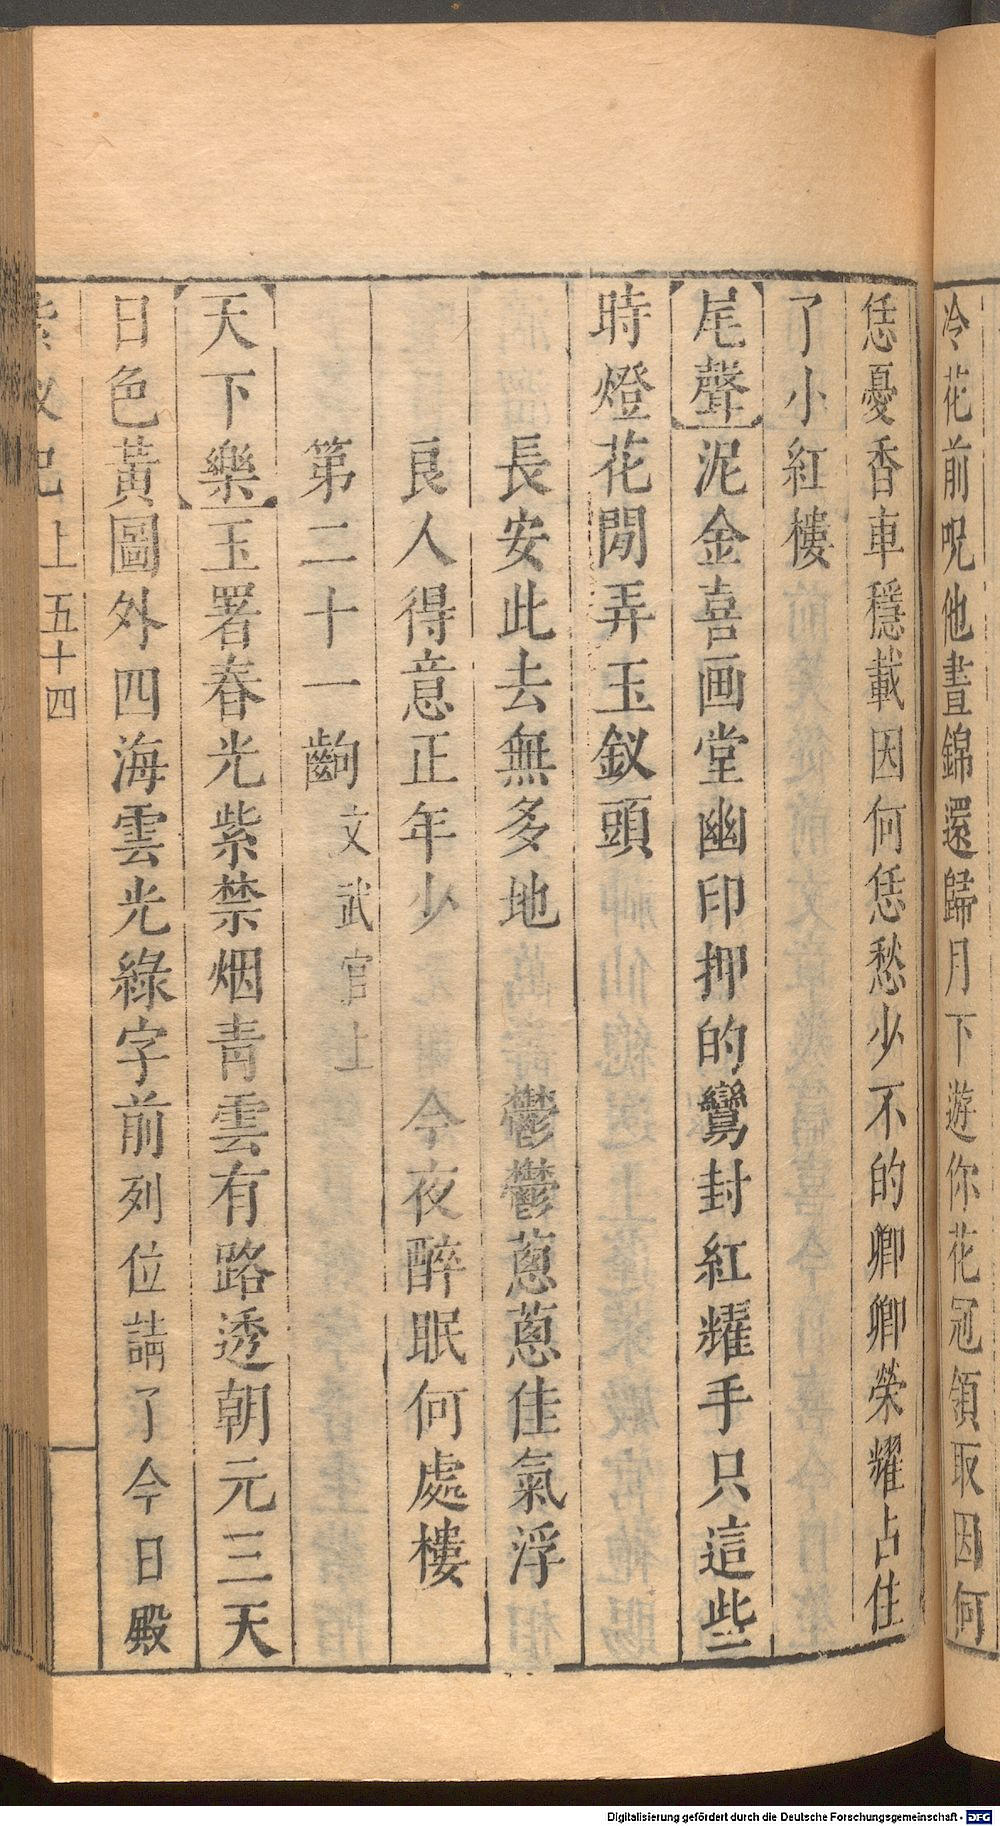 冷花前呪他晝錦還歸月下遊你花冠領取因何
恁憂香車穩載因何恁愁少不的卿卿榮耀占住
了小紅樓
尾聲泥金喜画堂幽印押的鸞封紅耀手只這些
時燈花閒弄玉釵頭
長安此去無多地 鬱鬱蔥蔥佳氣浮
良人得意正年少 今夜醉眠何處樓
第二十一齣 文武官上
天下樂玉署春光紫禁烟青雲有路透朝元三天
日色黃圖外四海雲光綠字前列位請了今日殿
紫釵記上 五十四
Digitalisierung gefördert durch die Deutsche Forschungsgemeinschaft - DFG